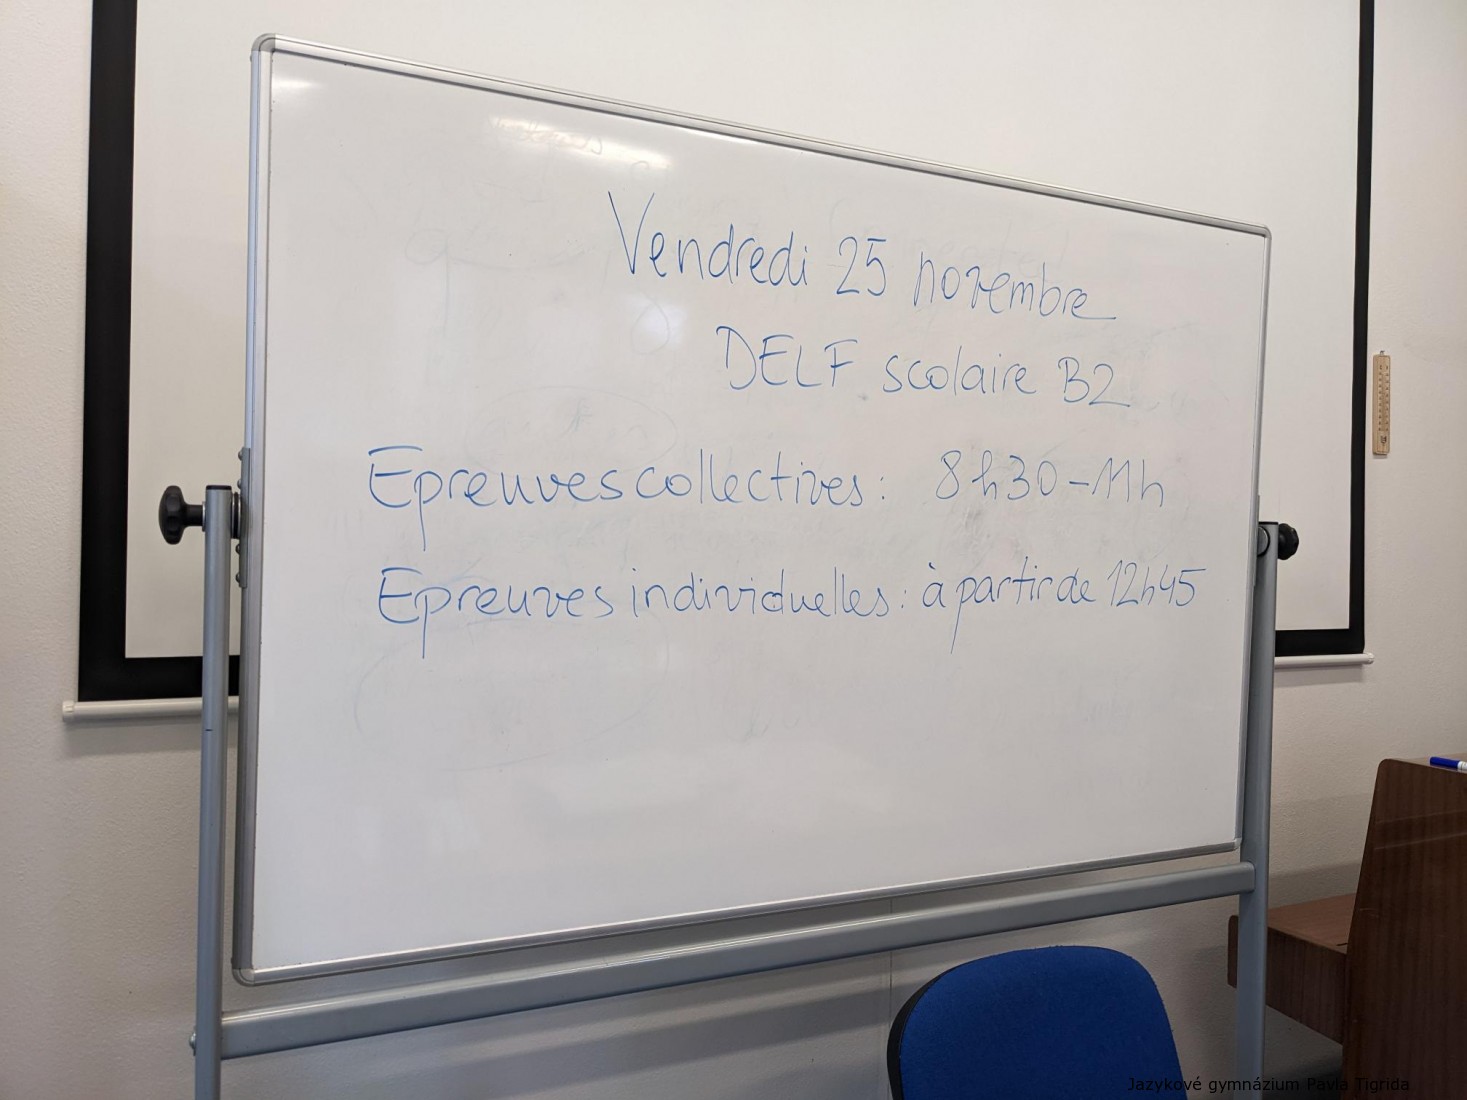 Vendredi 25 novembre
DELF scolaire B2
Epreuves collectives : 8h30 - 11h
Epreuves individuelles : à partir de 12h45
Jazykové gymnázium Pavla Tigrida